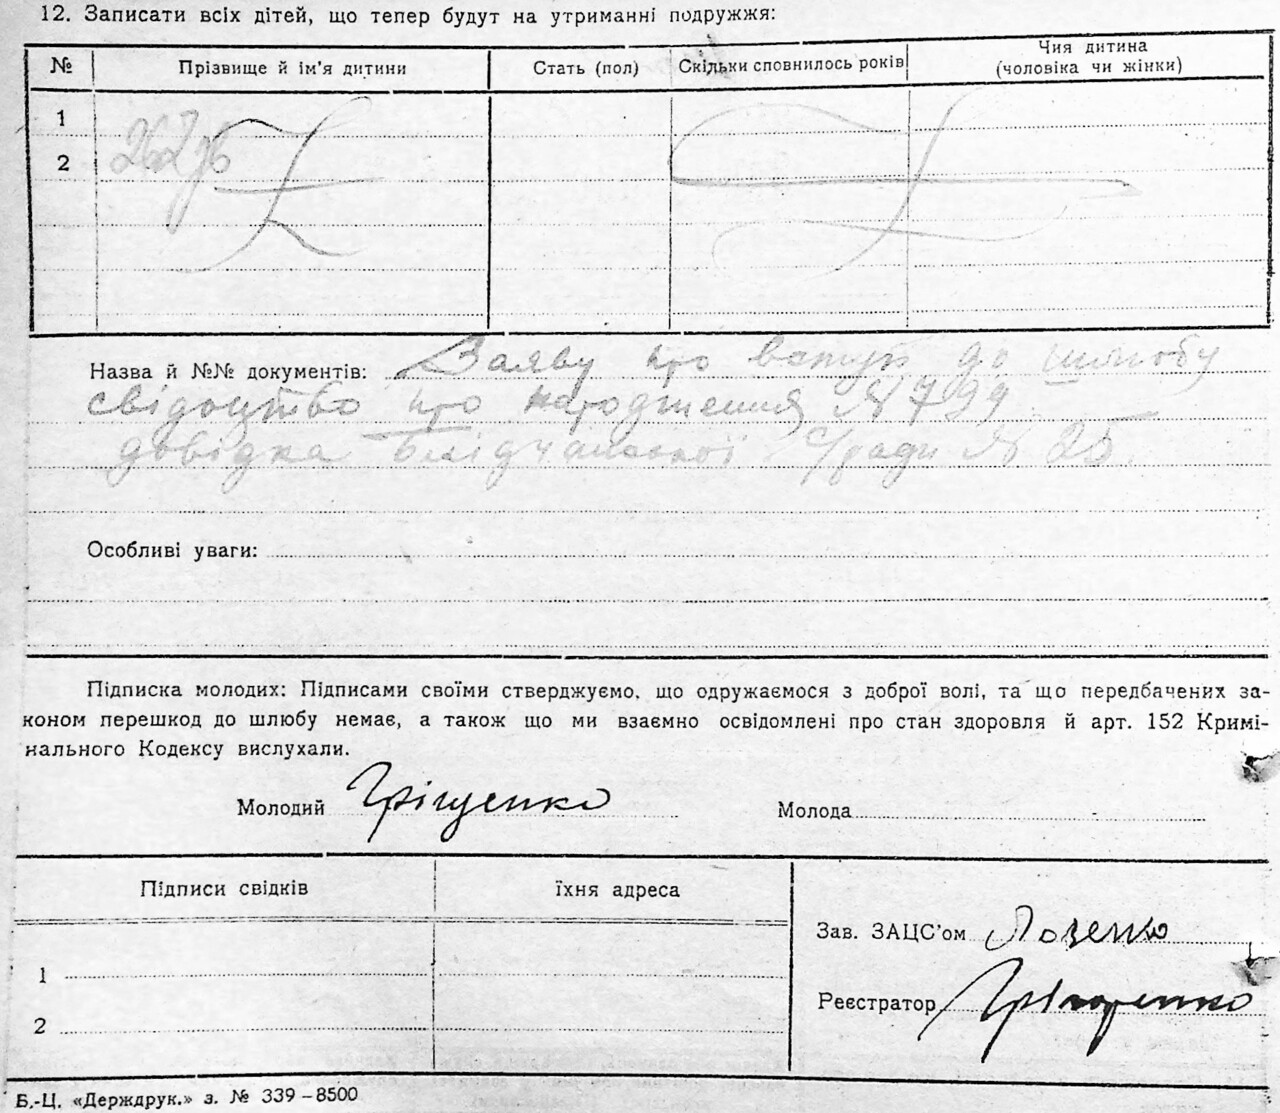 12. Записати всіх дітей, що тепер будут на утриманні подружжя:
№ Прізвище й ім'я дитини Стать (пол) Скільки сповнилось років Чия дитина (чоловіка чи жінки)
1
2
Назва й №№ документів: Заяву про вступ до шлюбу
свідоцтво про народження № 799
довідка с/ради № 25.
Особливі уваги:
Підписка молодих: Підписами своїми стверджуємо, що одружаємося з доброї волі, та що передбачених за-
коном перешкод до шлюбу немає, а також що ми взаємно освідомлені про стан здоровля й арт. 152 Кримі-
нального Кодексу вислухали.
Молодий Грищенко Молода
Підписи свідків їхня адреса
Зав. ЗАЦС'ом Лозенко
1
Реєстратор
2
Б.-Ц. «Держдрук.» з. № 339-8500